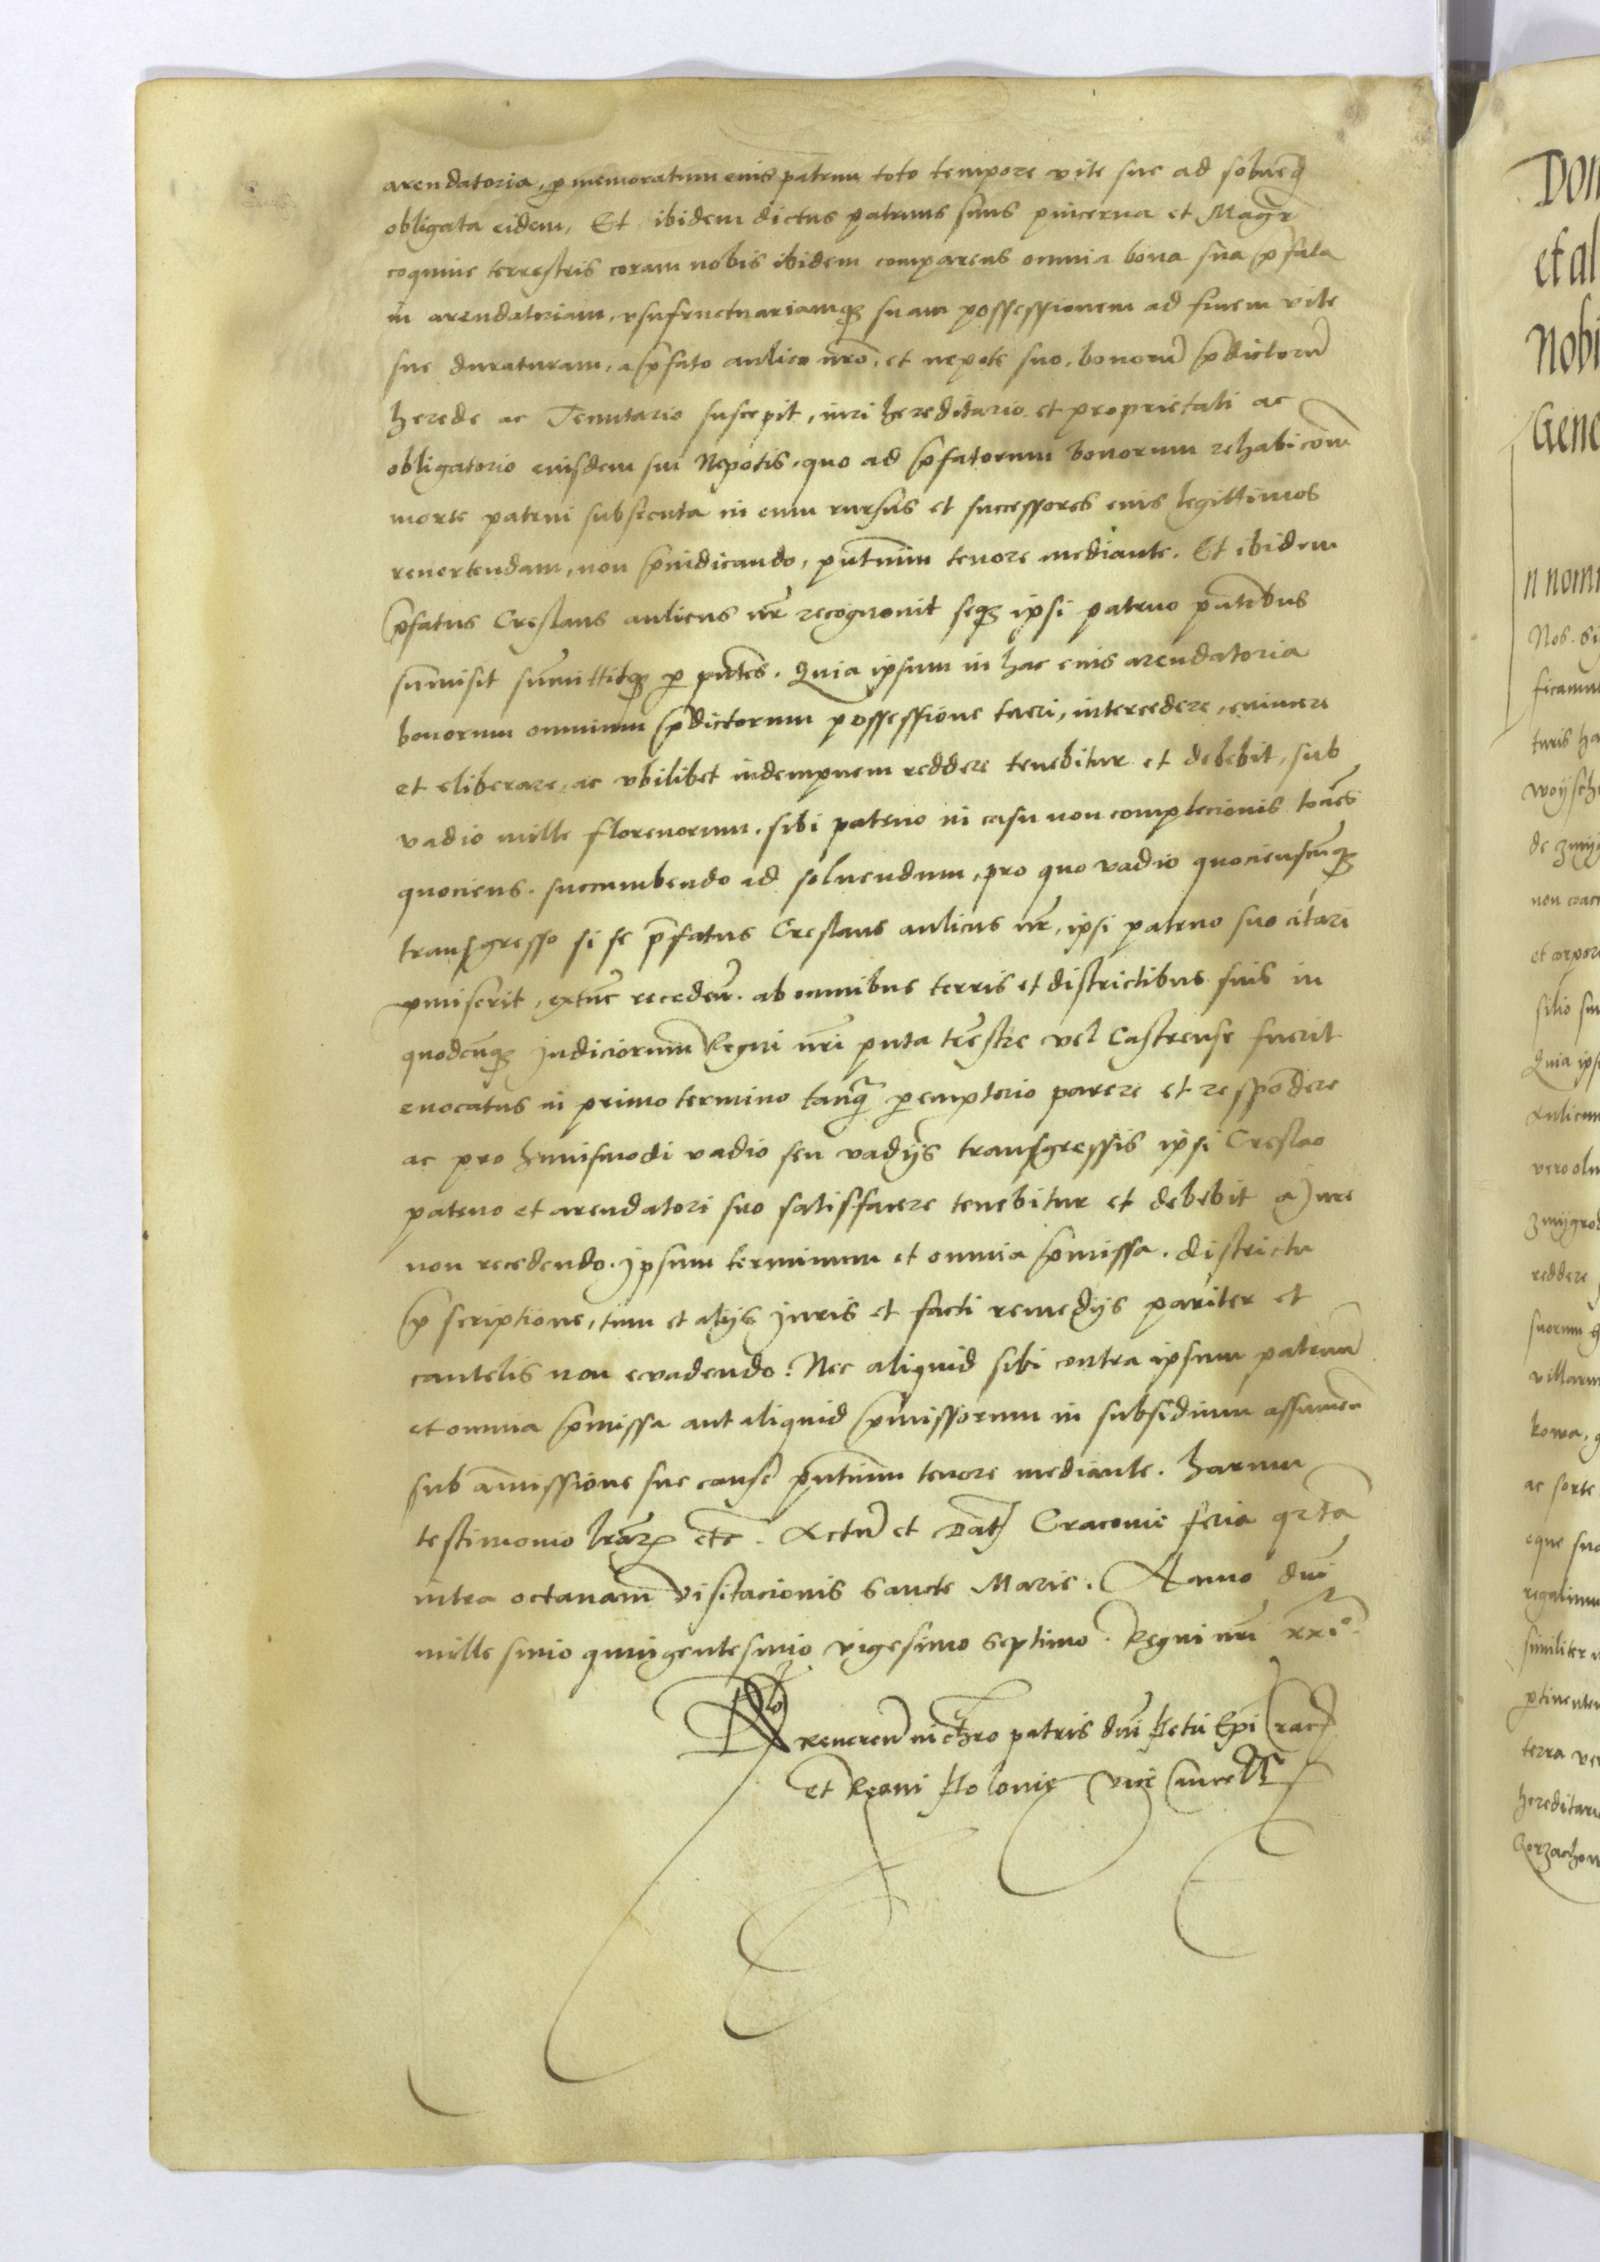 arendatoria, p memoratum eius patruu toto tempore vite sue ad solvend
obligata eidem, Et ibidem dictus patruus suus pincerna et Magr
coquine terrestris coram nobis ibidem comparens omnia bona sua pfata
in arendatoriam, usufructuariamq suam possessionem ad finem vite
sue duraturam, a pfato aulico nro, et nepote suo, bonoru pdictoru
herede ac Tenutario suscepit, iuri hereditario et proprietati ac
obligatorio eiusdem sui Nepotis, quo ad pfatorum bonorum
morte patrui subsecuta in eum rursus et successores eius legittimos
revertendam, non piudicando, pntium tenore mediante. Et ibidem
pfatus Creslaus aulicus nr recognovit seq ipsi patruo pntibus
summisit summittitq p pntes. Quia ipsum in hac eius arendatoria
bonorum omnium pdictorum possessione tueri, intercedere, evincere
et eliberare, ac ubilibet indempnem reddere tenebitur et debebit, sub
vadio mille florenorum. sibi patruo in casu non complecionis tocies
quociens. succumbendo ad solvendum, pro quo vadio quociescuq
transgresso si se pfatus Creslaus aulicus nr, ipsi patruo suo citari
pmiserit, extuc receden. ab omnibus terris et districtibus suis in
quodcuq Judiciorum Regni nri puta terestre vel Castrense fuerit
evocatus in primo termino tanq pemptorio parere et respondere
ac pro huiusmodi vadio seu vadijs transgressis ipsi Creslao
patruo et arendatori suo satisfacere tenebitur et debebit a Jure
non recedendo. Ipsum terminum et omnia pmissa. districta
pscriptione, tum et alijs Juris et facti remedijs pariter et
cautelis non evadendo. Nec aliquid sibi contra ipsum patruu
et omnia pmissa aut aliquid pmissorum in subsidium assumen
sub amissione sue cause pntium tenore mediante. harum
testimonio lrar etc. Actu et Dat Cracovie feria qrta
intra octavam Visitacionis Sancte Marie. Anno dni
millesimo quingentesimo vigesimo septimo. Regni nri xxi°
Reveren in chro patris dni Petri Epi Crac
et Regni Polonie vice Cancell
Don
et al
Nobi
Gene
n nomi
Nos. Si
ficamu
turis ha
woysch
de zmij
non coac
et corpor
silio su
Quia ips
Aulicum
vero olu
zmijgrod
reddere
suorum
villarum
kowa,
ac sorte
eque suo
regalium
similiter
ptinenten
terra ve
hereditari
Gorzachow